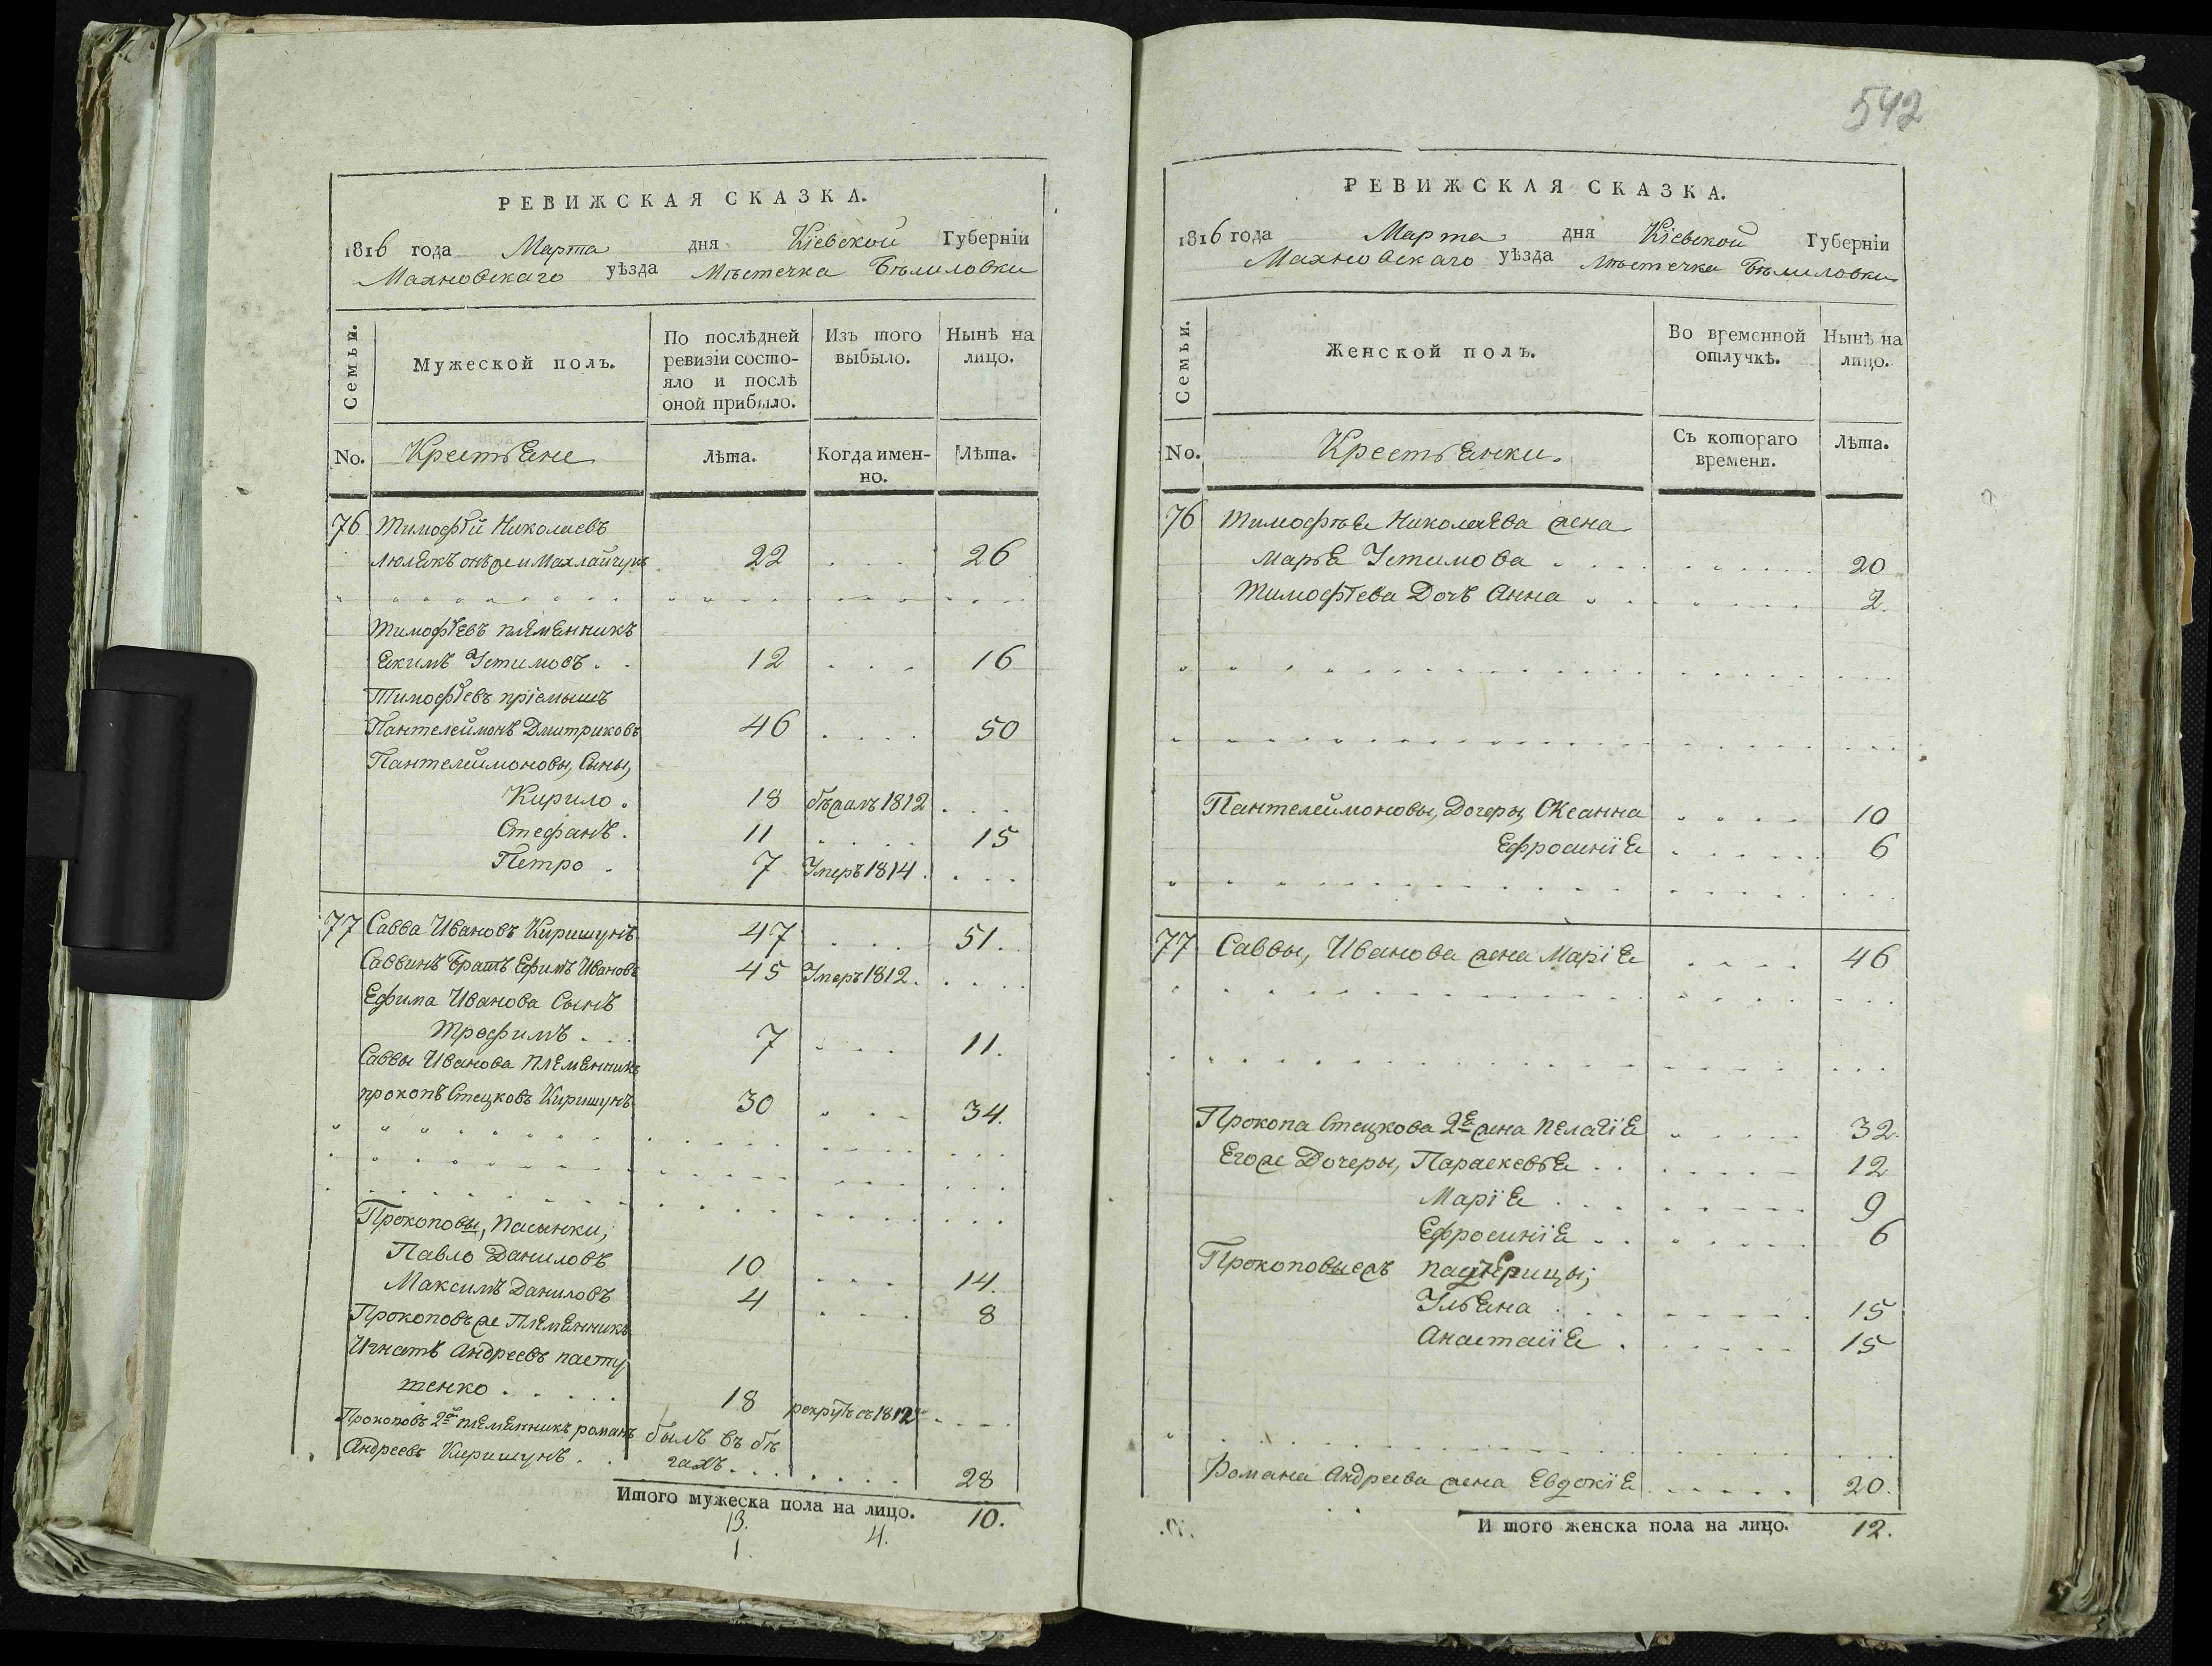 542
РЕВИЖСКАЯ СКАЗКА.
1816 года Марта дня Кіевской Губерніи
Махновскаго уѣзда Мѣстечка Бѣлиловки
Семьи.
Мужеской полъ.
По послѣдней ревизіи состояло и послѣ оной прибыло.
Изъ того выбыло.
Нынѣ на лицо.
No. Крестьяне Лѣта. Когда именно. Лѣта.
76 Тимофѣй Николаевъ
Люлякъ онъ же и Махлайчукъ 22 . . . 26
Тимофѣевъ племянникъ
Якимъ Устимовъ . . 12 . . . 16
Тимофѣевъ пріемышъ
Пантелеймонъ Дмитриковъ 46 . . . . 50
Пантелеймоновы, Сыны,
Кирило . 18 бѣжалъ 1812 . . .
Стефанъ . 11 . . . . 15
Петро . 7 Умеръ 1814 . . . .
77 Савва Ивановъ Киришунъ 47 . . . . 51.
Саввинъ Братъ Ефимъ Ивановъ 45 Умеръ 1812. . . . .
Ефима Иванова Сынъ
Трофимъ . . . 7 . . . . 11.
Саввы Иванова Племянникъ
прокопъ Стецковъ Киришунъ 30 . . . . 34.
Прокоповы, пасынки,
Павло Даниловъ 10 . . . . 14.
Максимъ Даниловъ 4 . . . . 8
Прокоповъ же Племянникъ
Игнатъ Андреевъ пасту
тенко . . . . . 18 рекрутъ съ 1812го . . . .
Прокоповъ 2й племянникъ романъ былъ въ бѣ
Андреевъ Киришунъ . . гахъ . . . . . . . 28
Итого мужеска пола на лицо. 10.
13. 4.
1.
РЕВИЖСКАЯ СКАЗКА.
1816 года Марта дня Кіевской Губерніи
Махновскаго уѣзда Мѣстечка Бѣлиловки
Семьи.
Женской полъ.
Во временной отлучкѣ.
Нынѣ на лицо.
No. Крестьянки. Съ котораго времени. Лѣта.
76 Тимофѣя Николаева жена
Марья Устимова . . . . 20
Тимофѣева Дочь Анна . . . 2
Пантелеймоновы, Дочеры, Оксанна . . . . 10
Ефросинія . . . . . . 6
77 Саввы, Иванова жена Марія . . . . 46
Прокопа Стецкова 2я жена Пелагія . . . . 32.
Его же Дочеры, Параскевья . . . . . . . 12
Марія . . . . . . 9
Ефросинія . . . . . . 6
Прокоповыежъ падчерицы;
Ульяна . . . . . . 15
Анастасія . . . . . . 15
Романа Андреева жена Евдокія . . . . . 20.
И того женска пола на лицо. 12.